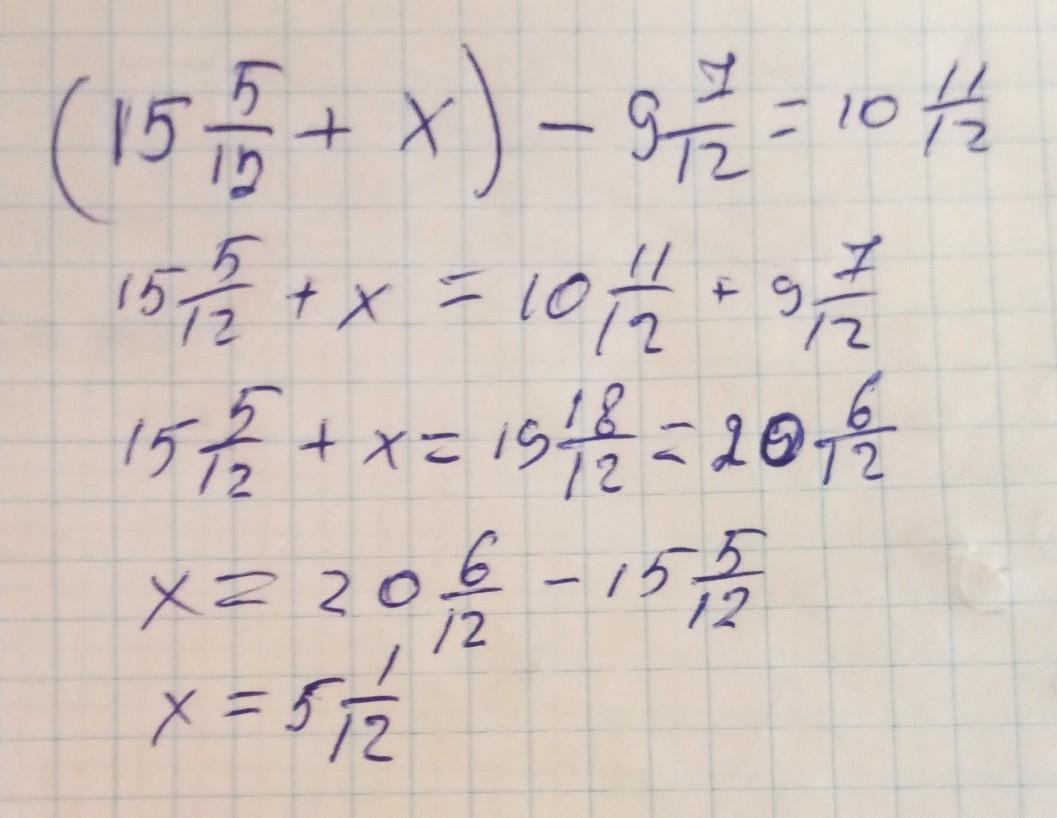 (15 5/12 + x) - 9 7/12 = 10 11/12
15 5/12 + x = 10 11/12 + 9 7/12
15 5/12 + x = 19 18/12 = 20 6/12
x = 20 6/12 - 15 5/12
x = 5 1/12